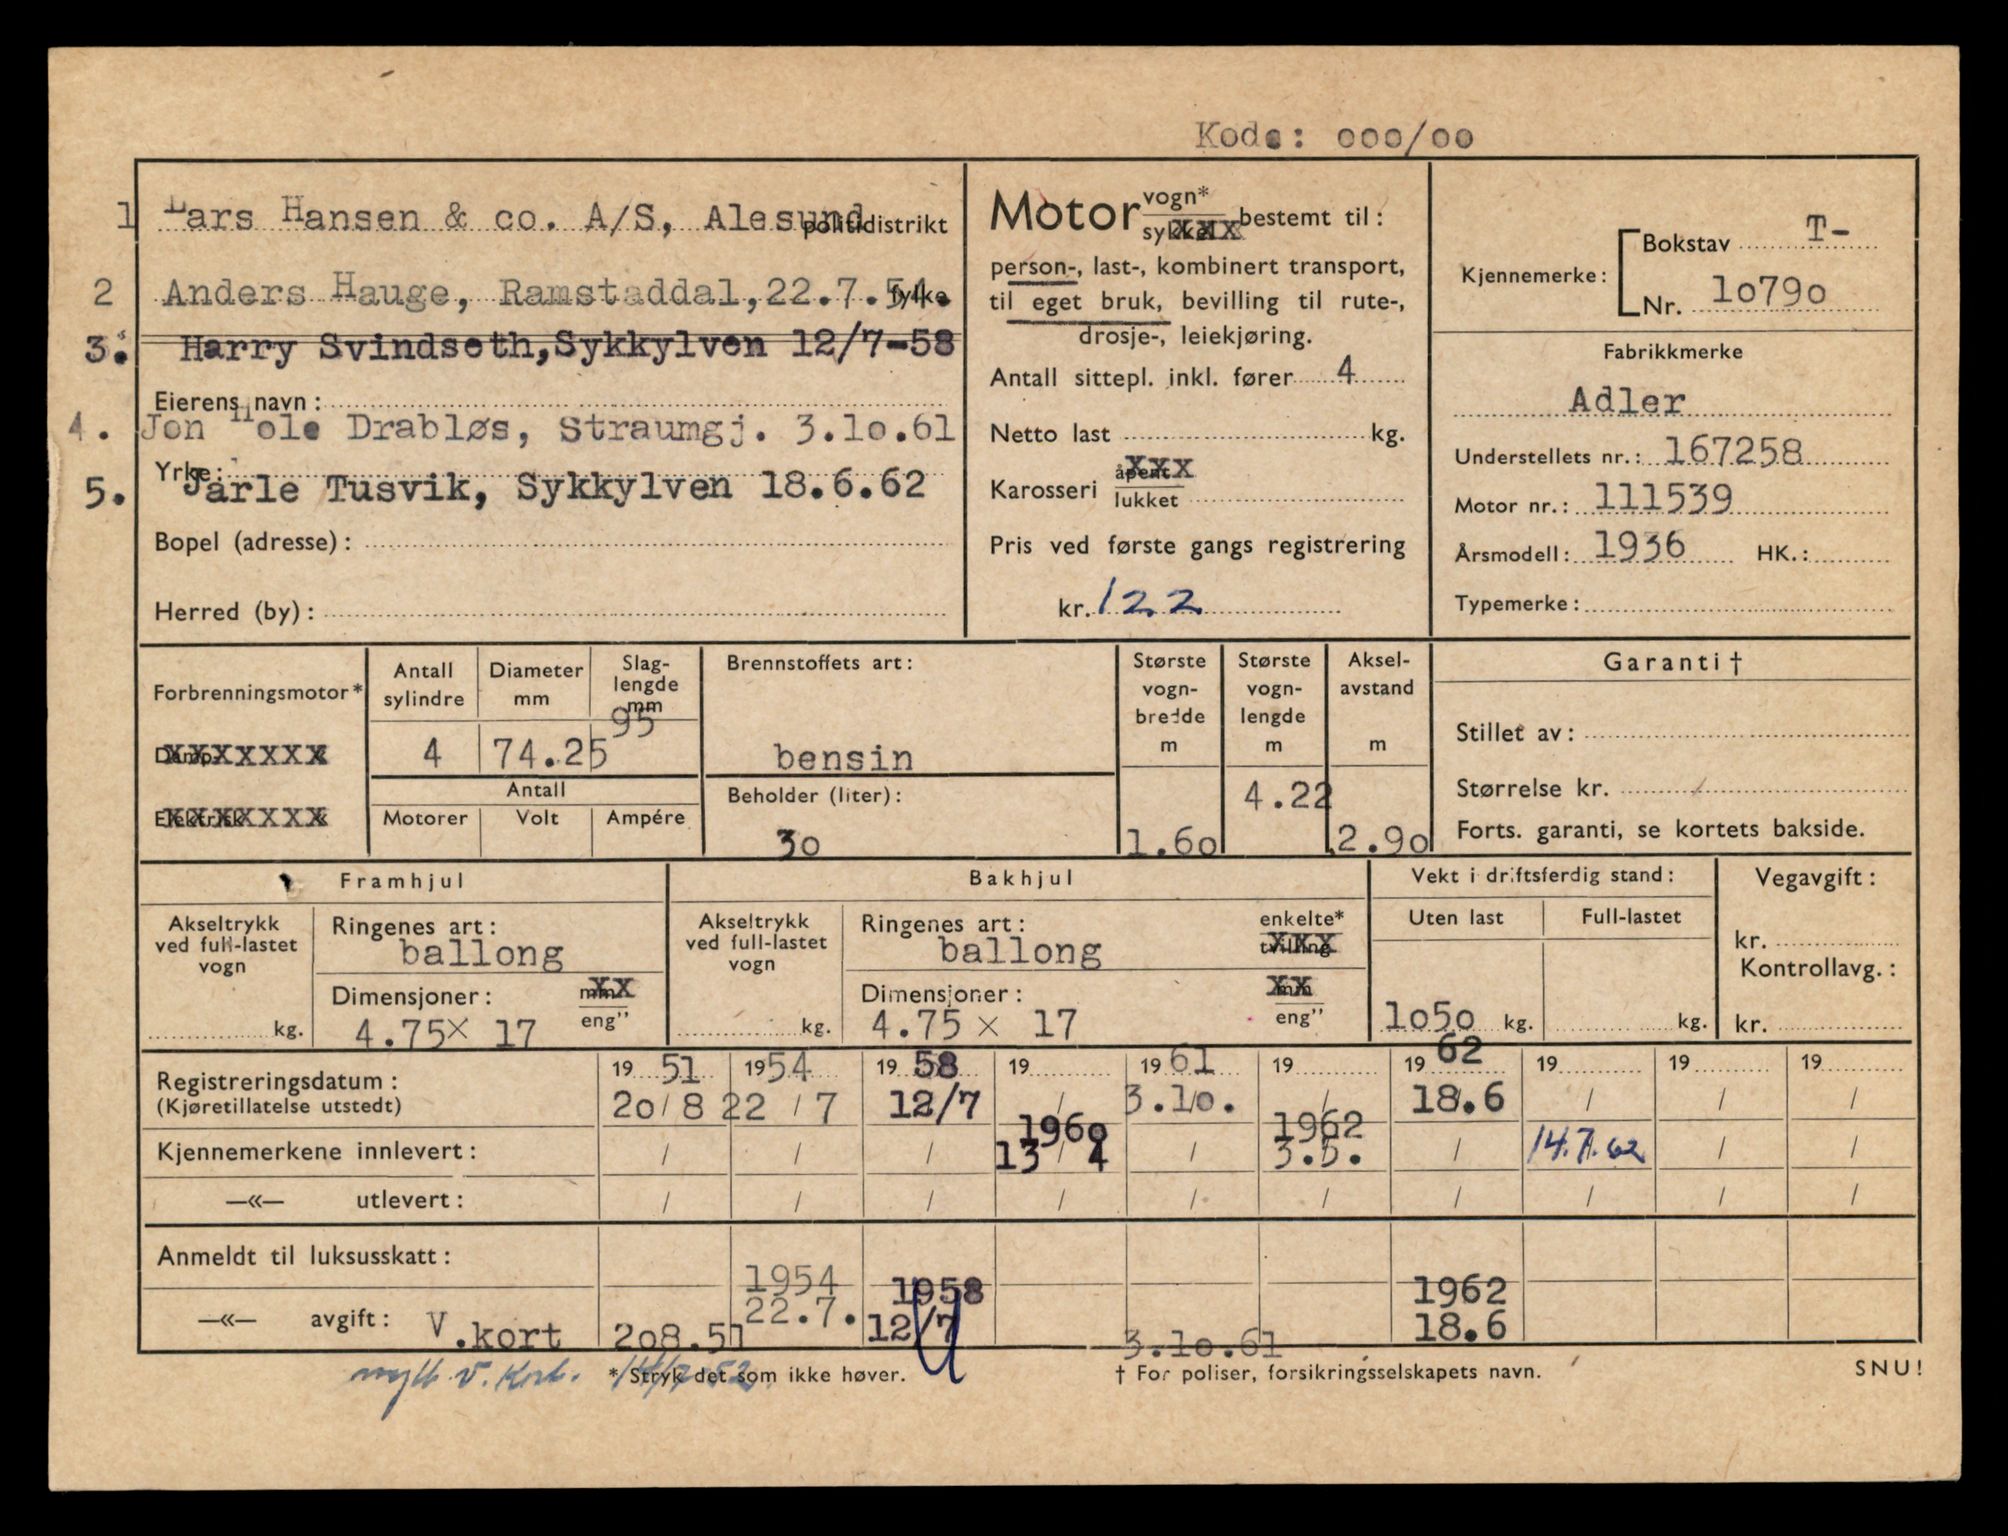 Kode: ooo/oo
1 Lars Hansen & co. A/S, Alesund politidistrikt
2 Anders Hauge, Ramstaddal, 22.7.54. fylke
3. Harry Svindseth, Sykkylven 12/7-58
Eierens navn:
4. Jon Hole Drabløs, Straumgj. 3.lo.61
Yrke:
5. Jarle Tusvik, Sykkylven 18.6.62
Bopel (adresse):
Herred (by):
Motor vogn* sykkel XXX bestemt til:
person-, last-, kombinert transport,
til eget bruk, bevilling til rute-,
drosje-, leiekjøring.
Antall sittepl. inkl. fører 4
Netto last kg.
Karosseri åpent XXX
lukket
Pris ved første gangs registrering
kr. 122
Kjennemerke: Bokstav T-
Nr. lo79o
Fabrikkmerke
Adler
Understellets nr.: 167258
Motor nr.: 111539
Årsmodell: 1936 HK.:
Typemerke:
Forbrenningsmotor*
Damp- XXXXXXX
Elektrisk XXXXXXX
Antall sylindre
4
Diameter mm
74.25
Slag-
lengde
mm
95
Antall
Motorer Volt Ampére
Brennstoffets art:
bensin
Beholder (liter):
3o
Største
vogn-
bredde
m
1.6o
Største
vogn-
lengde
m
4.22
Aksel-
avstand
m
2.9o
Garanti†
Stillet av:
Størrelse kr.
Forts. garanti, se kortets bakside.
Framhjul
Akseltrykk
ved full-lastet
vogn
kg.
Ringenes art:
ballong
Dimensjoner: mm XX
eng"
4.75x 17
Bakhjul
Akseltrykk
ved full-lastet
vogn
kg.
Ringenes art: enkelte*
ballong tvilling XXX
Dimensjoner: mm XX
eng"
4.75 x 17
Vekt i driftsferdig stand:
Uten last Full-lastet
lo5o kg. kg.
Vegavgift:
kr.
Kontrollavg.:
kr.
19 51 19 54 19 58 19 19 61 19 19 62 19 19 19
Registreringsdatum:
(Kjøretillatelse utstedt) 2o/8 22/7 12/7 / 3.lo. / 18.6 / / /
196o 1962
Kjennemerkene innlevert: / / / 13/4 / 3.5. / 14.7.62 / /
—«— utlevert: / / / / / / / / / /
Anmeldt til luksusskatt:
1954 1958 1962
—«— avgift: V.kort 2o8.51 22.7. 12/7 3.lo.61 18.6
* Stryk det som ikke høver.
† For poliser, forsikringsselskapets navn.
SNU!